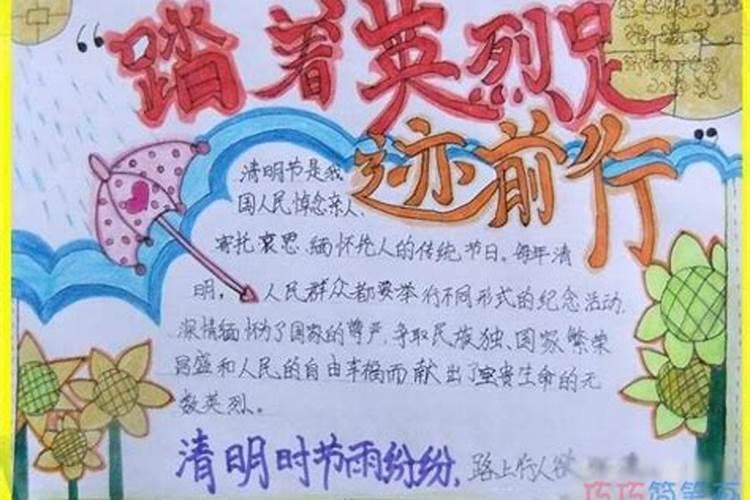 “踏着英烈足
迹前行”
清明节是我
国人民悼念亲人、
寄托哀思、缅怀先人的传统节日。每年清
明，人民群众都要举行不同形式的纪念活动，
深情缅怀为了国家的尊严，争取民族独、国家繁荣
昌盛和人民的自由幸福而献出了宝贵生命的无
数英烈。
清明时节雨纷纷，路上行人欲
巧巧简笔画